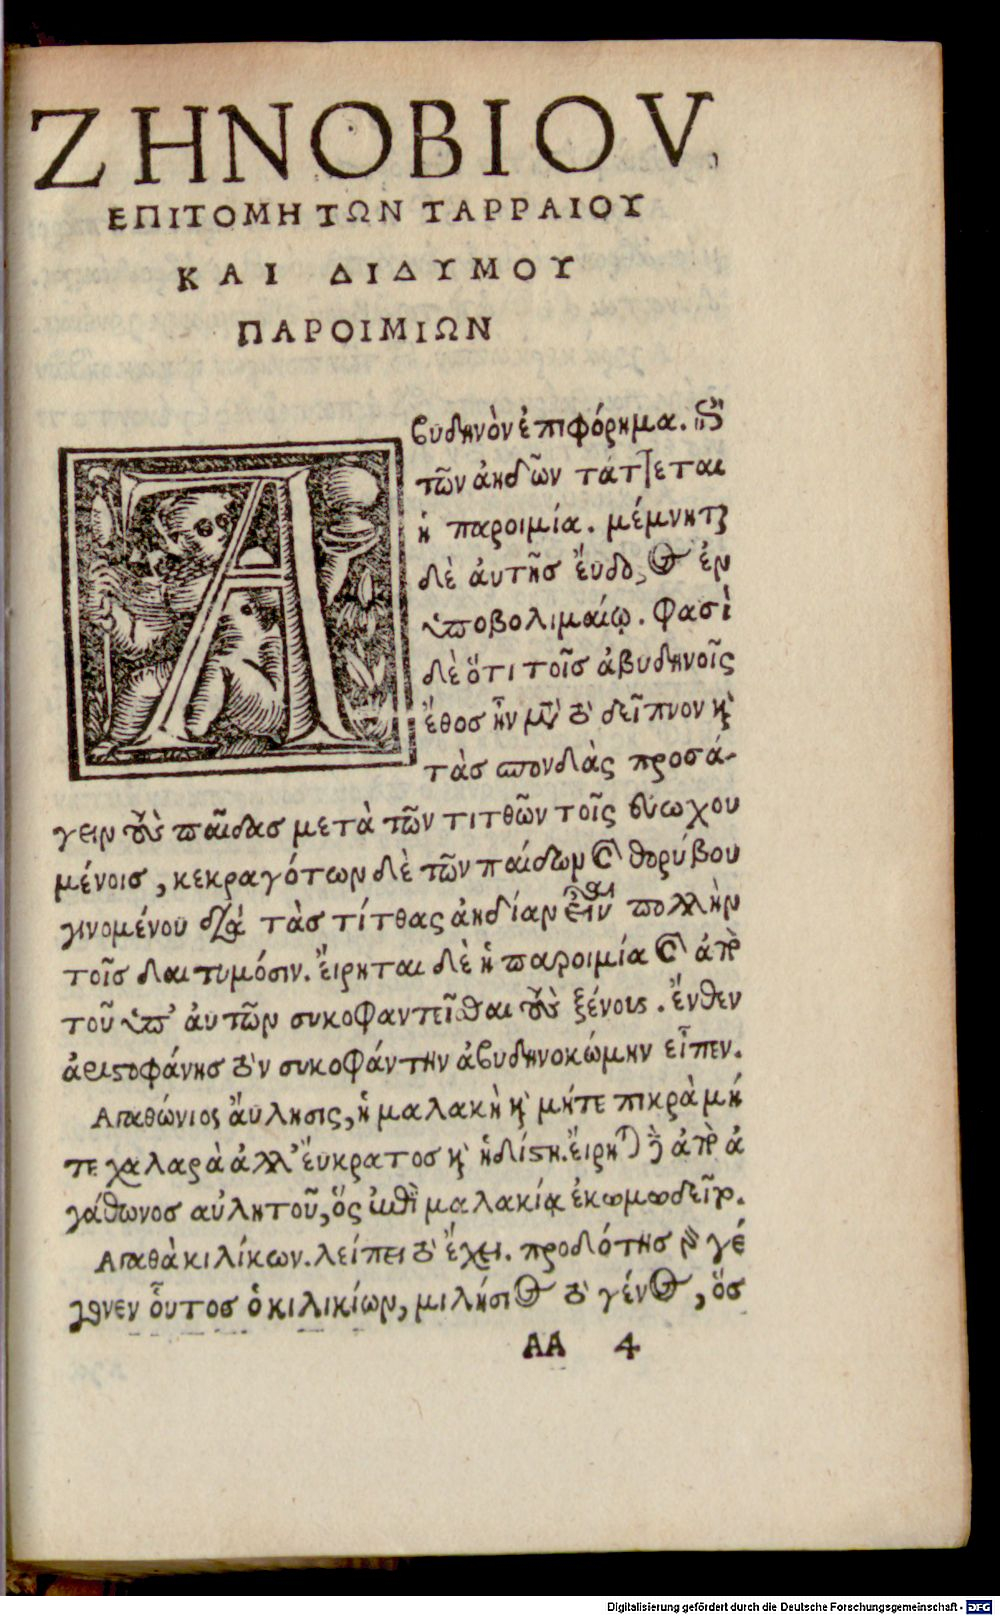 ΖΗΝΟΒΙΟΥ
ΕΠΙΤΟΜΗ ΤΩΝ ΤΑΡΡΑΙΟΥ
ΚΑΙ ΔΙΔΥΜΟΥ
ΠΑΡΟΙΜΙΩΝ
Α
βυδηνὸν ἐπιφόρημα. ἐπὶ
τῶν ἀηδῶν τάττεται
ἡ παροιμία. μέμνηται
δὲ ἀυτῆσ ἔυδοξος ἐν
ὑποβολιμαίῳ. φασὶ
δὲ ὅτι τοῖσ ἀβυδηνοῖς
ἔθοσ ἦν μετὰ τὸ δεῖπνον καὶ
τὰσ σπονδὰς προσά-
γειν τοὺς παῖδασ μετὰ τῶν τιτθῶν τοῖς ἐυωχου
μένοισ, κεκραγότων δὲ τῶν παίδων καὶ θορύβου
γινομένου διὰ τὰσ τίτθας ἀηδίαν εἶναι πολλὴν
τοῖσ δαιτυμόσιν. ἔιρηται δὲ ἡ παροιμία καὶ ἀπὸ
τοῦ ὑπ' ἀυτῶν συκοφαντεῖσθαι τοὺς ξένους. ἔνθεν
ἀριστοφάνησ τὸν συκοφάντην ἀβυδηνοκώμην εἶπεν.
Αγαθώνιος ἄυλησις, ἡ μαλακὴ καὶ μήτε πικρὰ μή
τε χαλαρὰ ἀλλ' ἔυκρατοσ καὶ ἡδίστη. ἔιρηται δὲ ἀπὸ ἀ
γάθωνοσ αὐλητοῦ, ὅς ἐπὶ μαλακίᾳ ἐκωμωδεῖτο.
Αγαθὰ κιλίκων. λείπει τὸ ἔχει. προδότησ γὰρ γέ
γονεν οὗτοσ ὁ κιλικίων, μιλήσιος τὸ γένος, ὅσ
ΑΑ 4
Digitalisierung gefördert durch die Deutsche Forschungsgemeinschaft - DFG